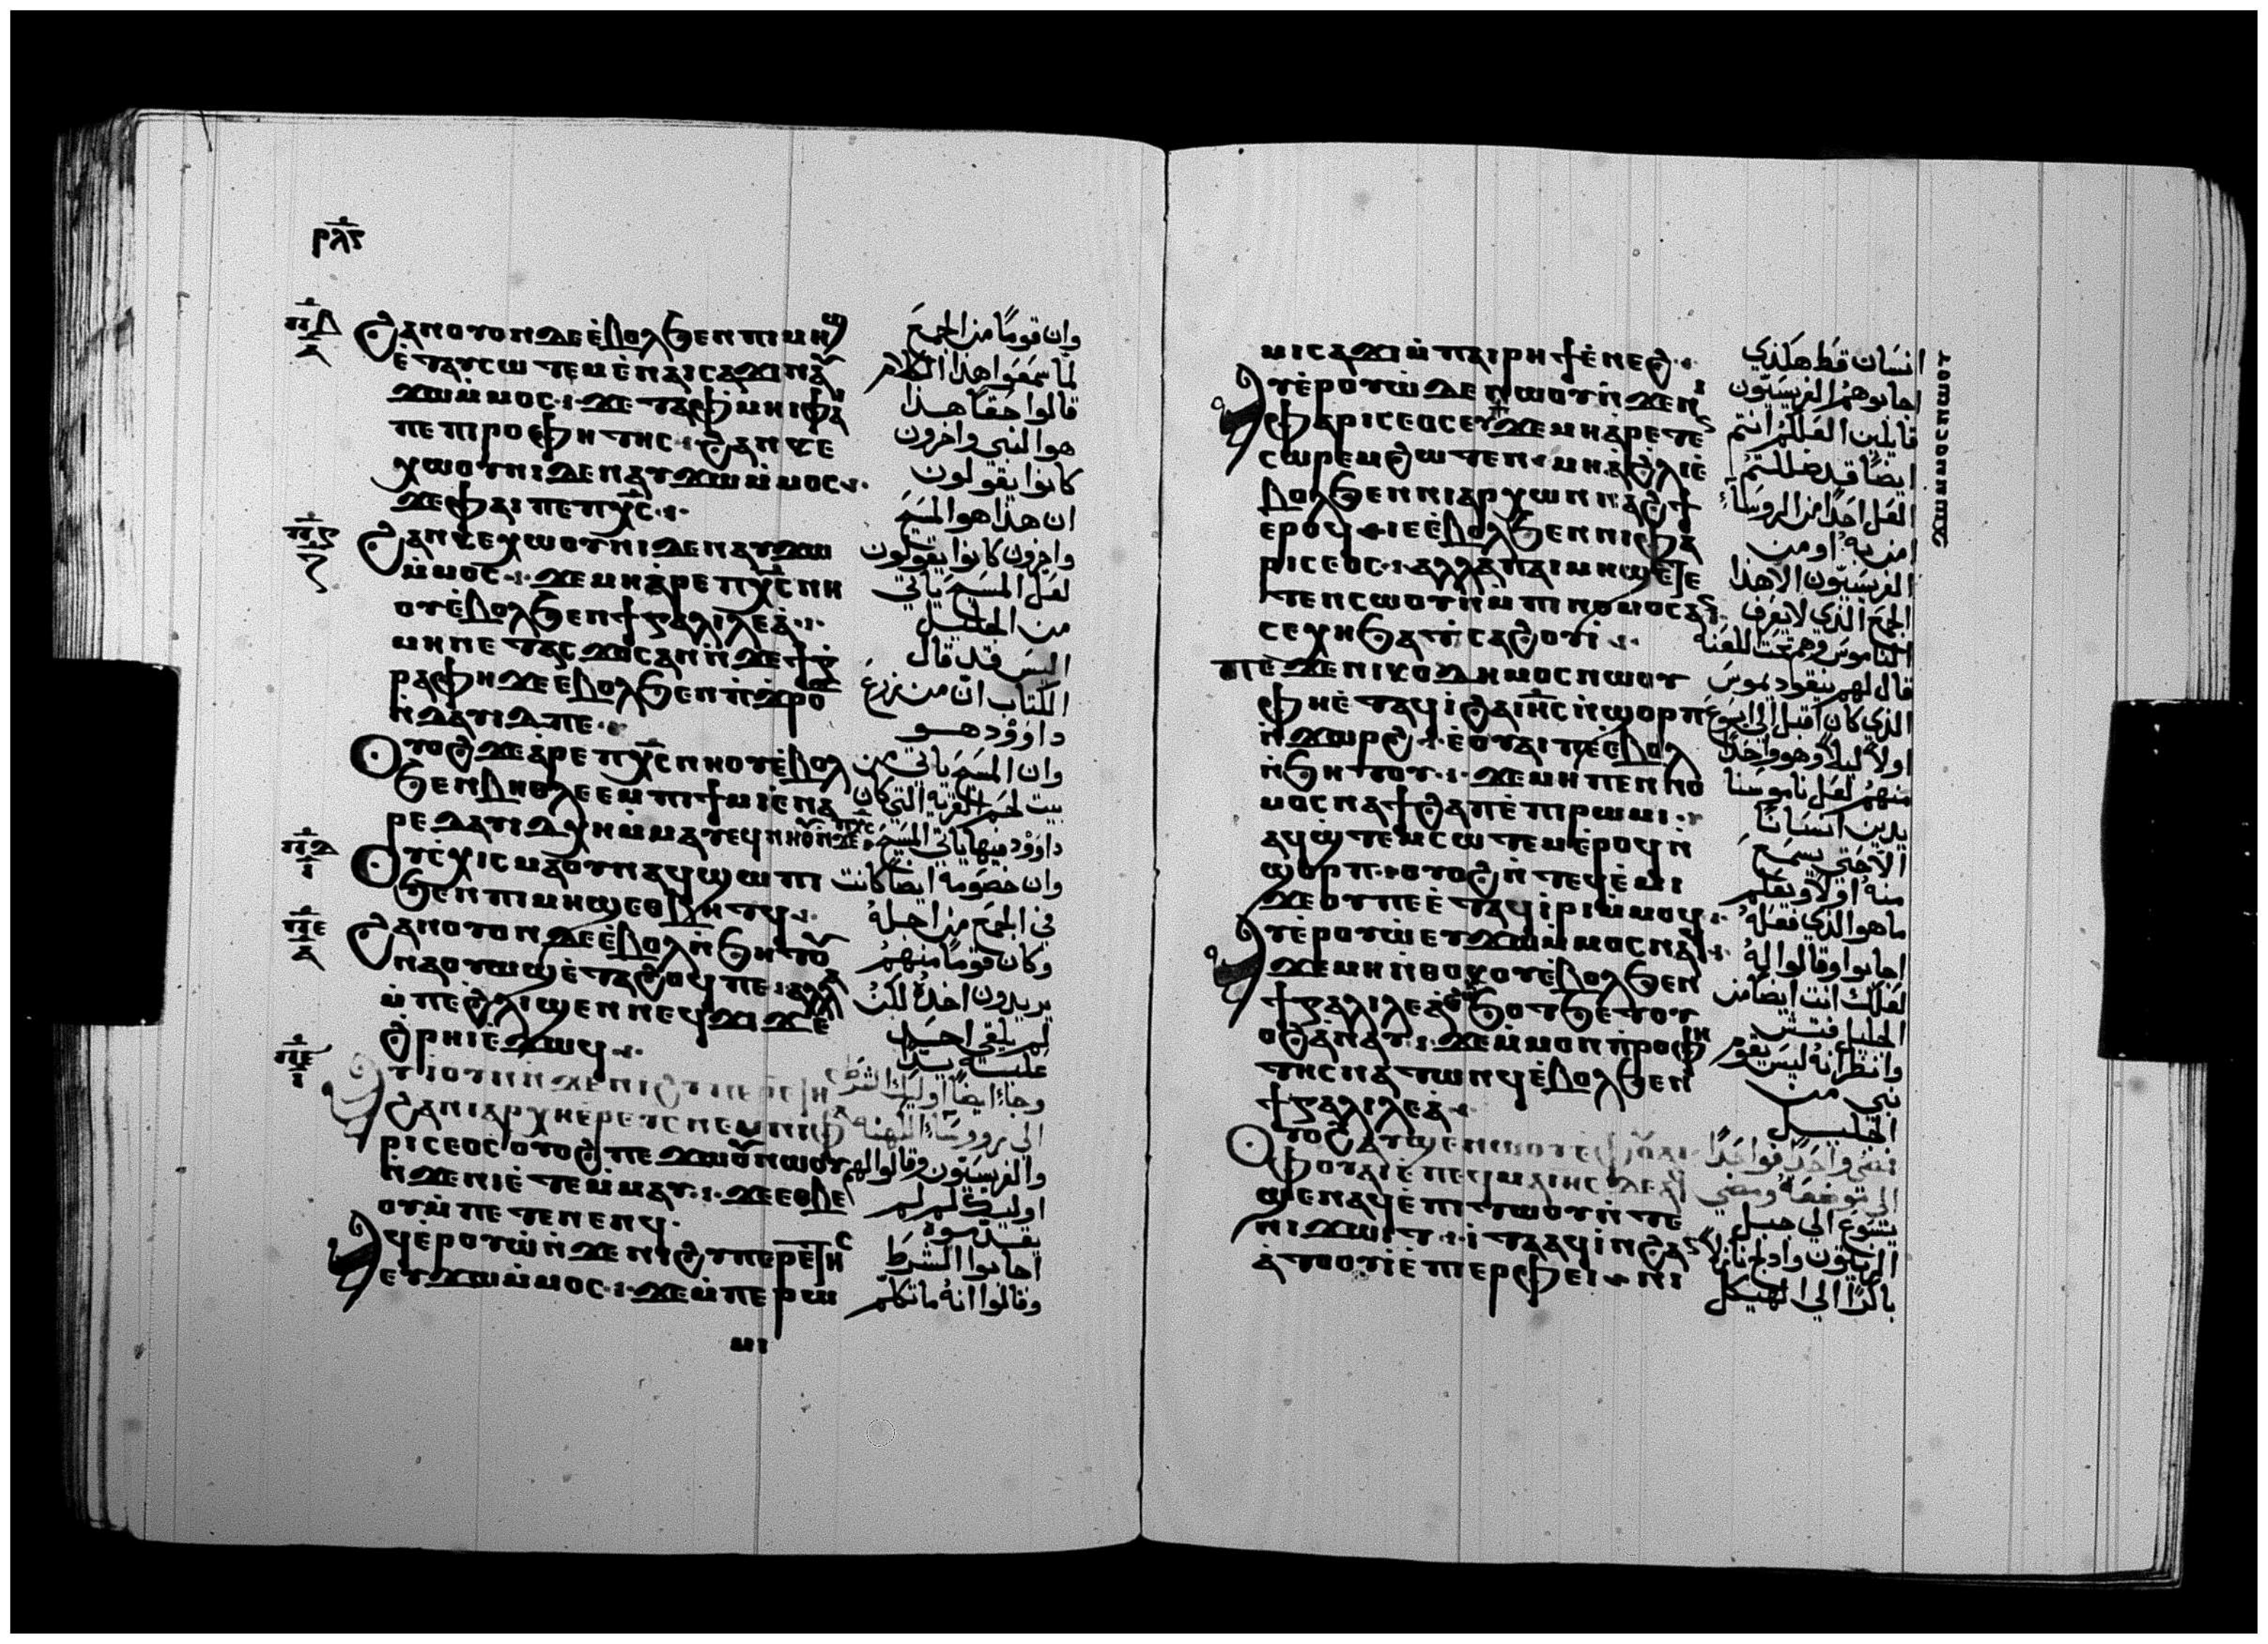 ⲣⲗⲋ
ϩⲁⲛⲟⲩⲟⲛ ⲇⲉ ⲉ̇ⲃⲟⲗ ϧⲉⲛ ⲡⲓⲙⲏϣ
ⲉ̇ⲧⲁⲩⲥⲱⲧⲉⲙ ⲉ̇ⲛⲁⲓⲥⲁϫⲓ ⲛⲁⲩ
ϫⲱ ⲙ̇ⲙⲟⲥ ϫⲉ ⲧⲁⲫⲙⲏⲓ ⲫⲁⲓ
ⲡⲉ ⲡⲓⲡⲣⲟⲫⲏⲧⲏⲥ ϩⲁⲛⲕⲉ
ⲭⲱⲟⲩⲛⲓ ⲇⲉ ⲛⲁⲩϫⲱ ⲙ̇ⲙⲟⲥ
ϫⲉ ⲫⲁⲓ ⲡⲉ ⲡⲭ̅ⲥ̅
ϩⲁⲛⲕⲉⲭⲱⲟⲩⲛⲓ ⲇⲉ ⲛⲁⲩϫⲱ
ⲙ̇ⲙⲟⲥ ϫⲉ ⲙⲏ ⲁ̇ⲣⲉ ⲡⲭ̅ⲥ̅ ⲛⲏ
ⲟⲩ ⲉ̇ⲃⲟⲗ ϧⲉⲛ ϯⲅⲁⲗⲓⲗⲉⲁ̇
ⲙⲏ ⲡⲉ ⲧⲁⲥϫⲟⲥ ⲁⲛ ⲛ̇ϫⲉ ϯⲅ
ⲣⲁⲫⲏ ϫⲉ ⲉⲃⲟⲗ ϧⲉⲛ ⲡ̇ϫⲣⲟϫ
ⲛ̇ⲇⲁⲩⲓⲇ ⲡⲉ
ⲟⲩⲟϩ ϫⲉ ⲁ̇ⲣⲉ ⲡⲭ̅ⲥ̅ ⲛⲏⲟⲩ ⲉ̇ⲃⲟⲗ
ϧⲉⲛ ⲃⲏⲑⲗⲉⲉⲙ ⲡⲓϯⲙⲓ ⲉ̇ⲛⲁ
ⲣⲉ ⲇⲁⲩⲓⲇ ⲭⲏ ⲙ̇ⲙⲁⲩ
ⲟⲩⲥ̇ⲭⲓⲥⲙⲁ ⲟⲩⲛ ⲁϥϣⲱⲡⲓ
ϧⲉⲛ ⲡⲓⲙⲏϣ ⲉⲑⲃⲏⲧϥ
ϩⲁⲛⲟⲩⲟⲛ ⲇⲉ ⲉ̇ⲃⲟⲗ ⲛ̇ϧⲏⲧⲟⲩ
ⲛⲁⲟⲩⲱϣ ⲉ̇ⲧⲁϩⲟϥ ⲡⲉ ⲁⲗⲗⲁ
ⲙ̇ⲡⲉ ϩⲗⲓ ϣⲉⲛ ⲛⲉϥϫⲓϫ ⲉ̇
ϩ̇ⲣⲏⲓ ⲉ̇ϫⲱϥ
ⲁⲩⲓ ⲟⲩⲛ ⲛ̇ϫⲉ ⲛⲓϩⲩⲡⲉⲣⲉⲧⲏⲥ
ϩⲁ ⲛⲓⲁⲣⲭⲏⲉ̇ⲣⲉⲩⲥ ⲛⲉⲙ ⲛⲓⲫⲁ
ⲣⲓⲥⲉⲟⲥ ⲟⲩⲟϩ ⲡⲉϫⲱⲟⲩ ⲛⲱⲟⲩ
ⲛ̇ϫⲉ ⲛⲓⲉ̇ⲧⲉⲙ̇ⲙⲁⲩ ϫⲉ ⲉⲑⲃⲉ
ⲟⲩ ⲙ̇ⲡⲉⲧⲉⲛⲉⲛϥ
ⲁⲩⲉ̇ⲣⲟⲩⲱ̇ ⲛ̇ϫⲉ ⲛⲓϩⲩⲡⲉⲣⲉⲧⲏⲥ
ⲉⲩϫⲱ ⲙ̇ⲙⲟⲥ ϫⲉ ⲙ̇ⲡⲉ ⲣⲱ
ⲙⲓ
وان قومًا من الجمع
لما سمعوا هذا الكلام
قالوا حقا هذا
هو النبي واخرون
كانوا يقولون
ان هذا هو المسيح
واخرون كانوا يقولون
لعل المسيح ياتي
من الجليل
اليس قد قال
الكتاب ان من زرع
داوود هو
وان المسيح ياتي من
بيت لحم القرية التي كان
داوود فيها ياتي المسيح
وان خصومه ايضا كانت
في الجمع من اجله
وكان قومًا منهم
يريدون اخذه لكن
لم يلقي احد
عليه يدا
وجاء ايضا اوليك الشرط
الى روسا الكهنه
والفريسيون وقالوا لهم
اوليك لم لم
تقدموه
اجابوا الشرط
وقالوا انه ما تكلم
ⲙⲓ ⲥⲁϫⲓ ⲙ̇ⲡⲁⲓⲣⲏϯ ⲉ̇ⲛⲉϩ
ⲁⲩⲉ̇ⲣⲟⲩⲱ̇ ⲇⲉ ⲛⲱⲟⲩ ⲛ̇ϫⲉ ⲛⲓ
ⲫⲁⲣⲓⲥⲉⲟⲥ ϫⲉ ⲙⲏ ⲁ̇ⲣⲉⲧⲉⲛ
ⲥⲱⲣⲉⲙ ϩⲱⲧⲉⲛ ⲙⲏ ⲁ̇ϩⲗⲓ ⲉ̇
ⲃⲟⲗ ϧⲉⲛ ⲛⲓⲁⲣⲭⲱⲛ ⲛⲁϩϯ
ⲉⲣⲟϥ ⲓⲉ ⲉ̇ⲃⲟⲗ ϧⲉⲛ ⲛⲓⲫⲁ
ⲣⲓⲥⲉⲟⲥ ⲁⲗⲗⲁ ⲡⲁⲓⲙⲏϣ ⲉⲧⲉ
ⲛ̇ⲥⲉⲥⲱⲟⲩⲛ ⲙ̇ⲡⲓⲛⲟⲙⲟⲥ ⲁⲛ
ⲥⲉⲭⲏ ϧⲁ ⲡⲓⲥⲁϩⲟⲩⲓ
ⲡⲉϫⲉ ⲛⲓⲕⲟⲇⲏⲙⲟⲥ ⲛⲱⲟⲩ
ⲫⲏ ⲉ̇ⲧⲁϥⲓ̇ ϩⲁ ⲓⲏ̅ⲥ̅ ⲛ̇ϣⲟⲣⲡ
ⲛ̇ϫⲱⲣϩ ⲉ̇ⲟⲩⲁⲓ ⲡⲉ ⲉ̇ⲃⲟⲗ
ⲛ̇ϧⲏⲧⲟⲩ ϫⲉ ⲙⲏ ⲡⲉⲛⲛⲟ
ⲙⲟⲥ ⲛⲁϯϩⲁⲡ ⲉ̇ⲡⲓⲣⲱⲙⲓ
ⲁϥϣ̇ⲧⲉⲙⲥⲱⲧⲉⲙ ⲉ̇ⲣⲟϥ ⲛ̇
ϣⲟⲣⲡ ⲟⲩⲟϩ ⲛ̇ⲧⲉϥⲉ̇ⲙⲓ
ϫⲉ ⲟⲩ ⲡⲉ ⲉ̇ⲧⲁϥⲓⲣⲓ ⲙ̇ⲙⲟϥ
ⲁⲩⲉ̇ⲣⲟⲩⲱ̇ ⲉⲩϫⲱ ⲙ̇ⲙⲟⲥ ⲛⲁϥ
ϫⲉ ⲙⲏ ⲛ̇ⲑⲟⲕ ⲟⲩⲉ̇ⲃⲟⲗ ϧⲉⲛ
ϯⲅⲁⲗⲓⲗⲉⲁ̇ ϧⲟⲧϧⲉⲧ ⲟⲩ
ⲟϩ ⲁⲛⲁⲩ ϫⲉ ⲙ̇ⲙⲟⲛ ⲡ̇ⲣⲟⲫⲏ
ⲧⲏⲥ ⲛⲁⲧⲱⲛϥ ⲉ̇ⲃⲟⲗ ϧⲉⲛ
ϯⲅⲁⲗⲓⲗⲉⲁ̇
ⲟⲩⲟϩ ⲁⲩϣⲉ ⲛⲱⲟⲩ ⲉ ⲫⲟⲩⲁⲓ
ⲫⲟⲩⲁⲓ ⲉ̇ⲡⲉϥⲙⲁ ⲓⲏ̅ⲥ̅ ⲇⲉ ⲁϥ
ϣⲉⲛⲁϥ ⲉ̇ⲡⲓⲧⲱⲟⲩ ⲛ̇ⲧⲉ
ⲛⲓϫⲱⲓⲧ
ⲁ̇ⲧⲟⲟⲩⲓ̇ ⲉ̇ⲡⲓⲉⲣⲫⲉⲓ
انسان قط هكذي
اجابوهم الفريسيون
قايلين العلكم انتم
ايضا قد ضللتم
العل احدًا من الروساء
امن به او من
الفريسيون الا هذا
الجمع الذي لا يعرف
الناموس وهم تحت اللعنه
قال لهم نيقوديموس
الذي كان اقبل الى يسوع
اولا ليلا وهو واحدا
منهم لعل ناموسنا
يدين انسانا
الا حتي يسمع
منه اولا ويعلم
ما هو الذي فعله
اجابوا وقالوا له
لعلك انت ايضا من
الجليل فتش
وانظر انه ليس يقوم
نبي من
الجليل
فمضي واحدًا فواحدًا
الى موضعه ومضي
يسوع الي جبل
الزيتون
باكرًا الي الهيكل